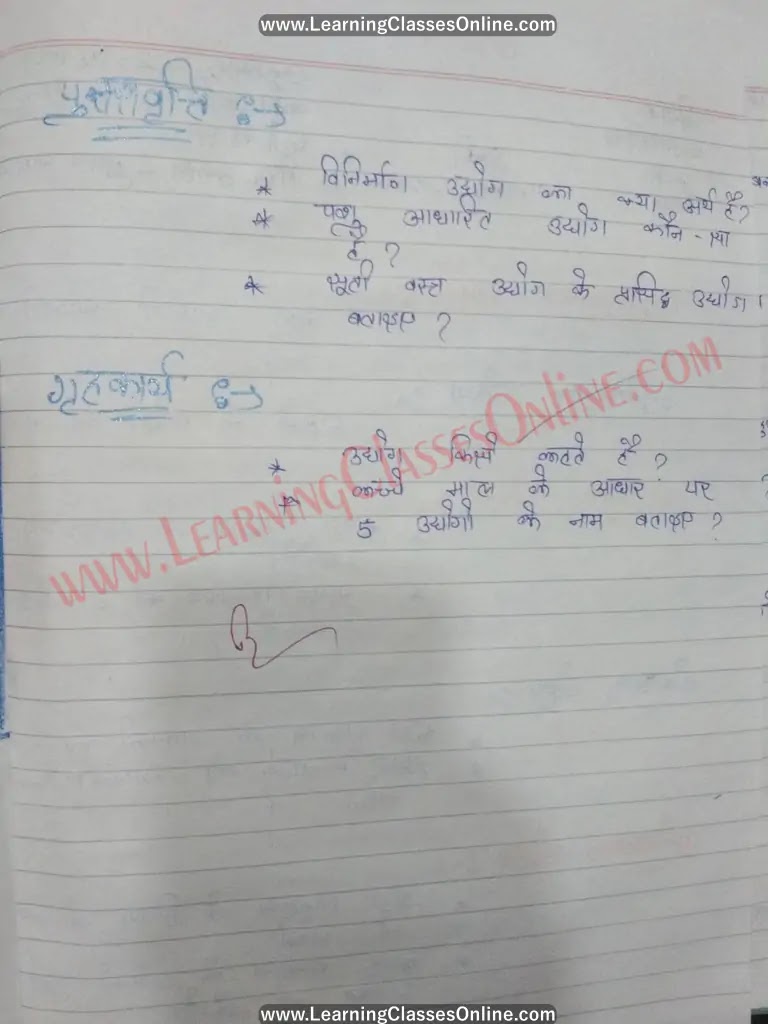 www.LearningClassesOnline.com
पुनरावृत्ति :→
* विनिर्माण उद्योग का क्या अर्थ है?
* पशु आधारित उद्योग कौन-सा
है ?
* सूती वस्त्र उद्योग के प्रसिद्ध उद्योग।
बताइए ?
गृहकार्य :→
* उद्योग किसे कहते है ?
* कच्चे माल के आधार पर
5 उद्योगो के नाम बताइए ?
www.LearningClassesOnline.com
www.LearningClassesOnline.com